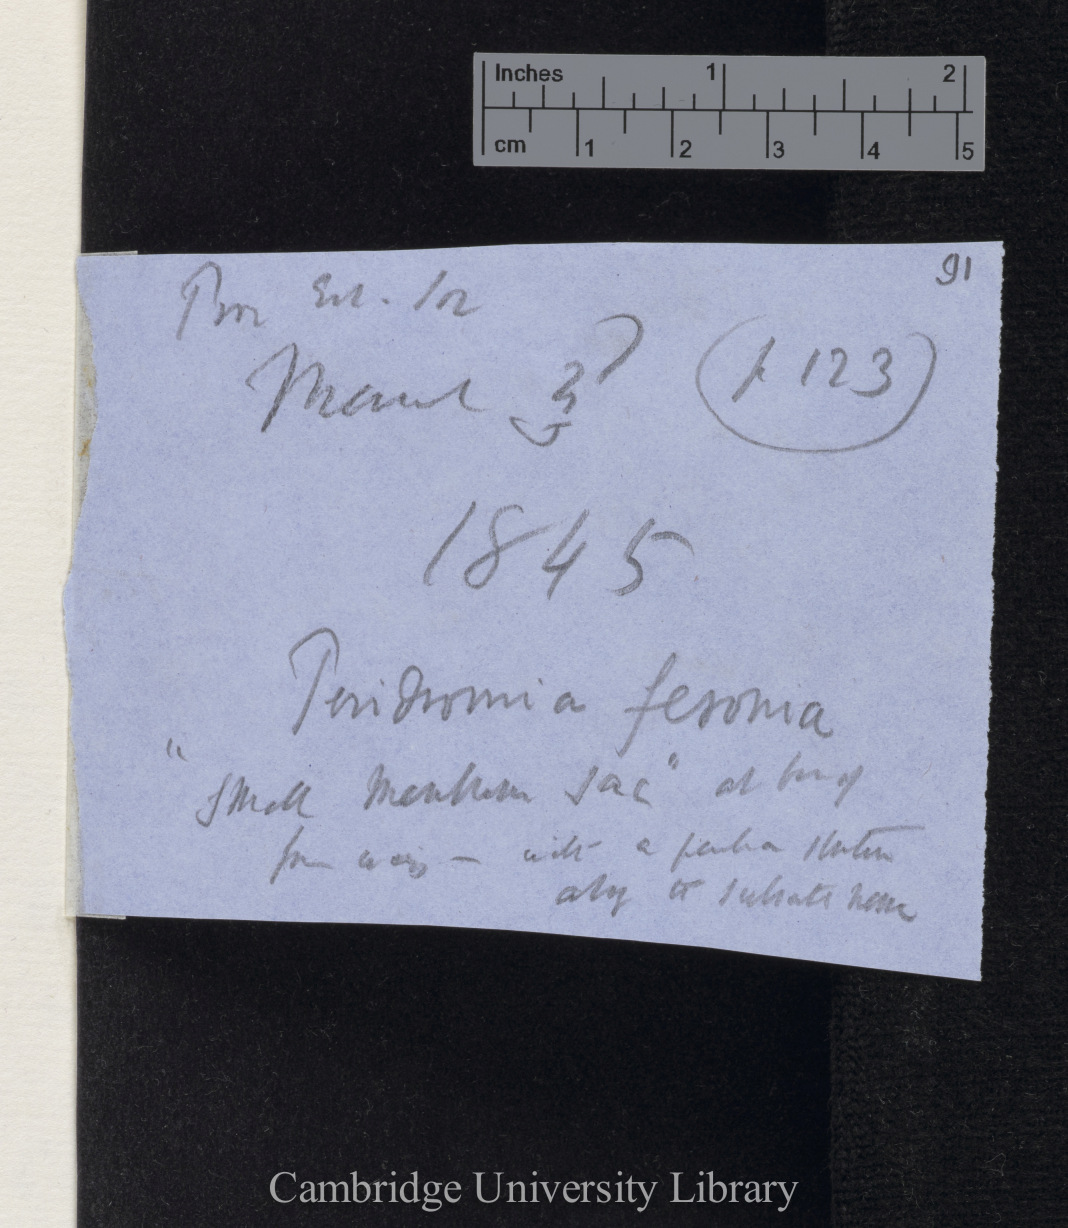 Inches 1 2
cm 1 2 3 4 5
91
Proc Ent. Soc
March 3? (p 123)
1845
Peridromia feronia
"Small membran sac" at base of
fore wings — with a peculiar structure
along to subcostal nervure
Cambridge University Library